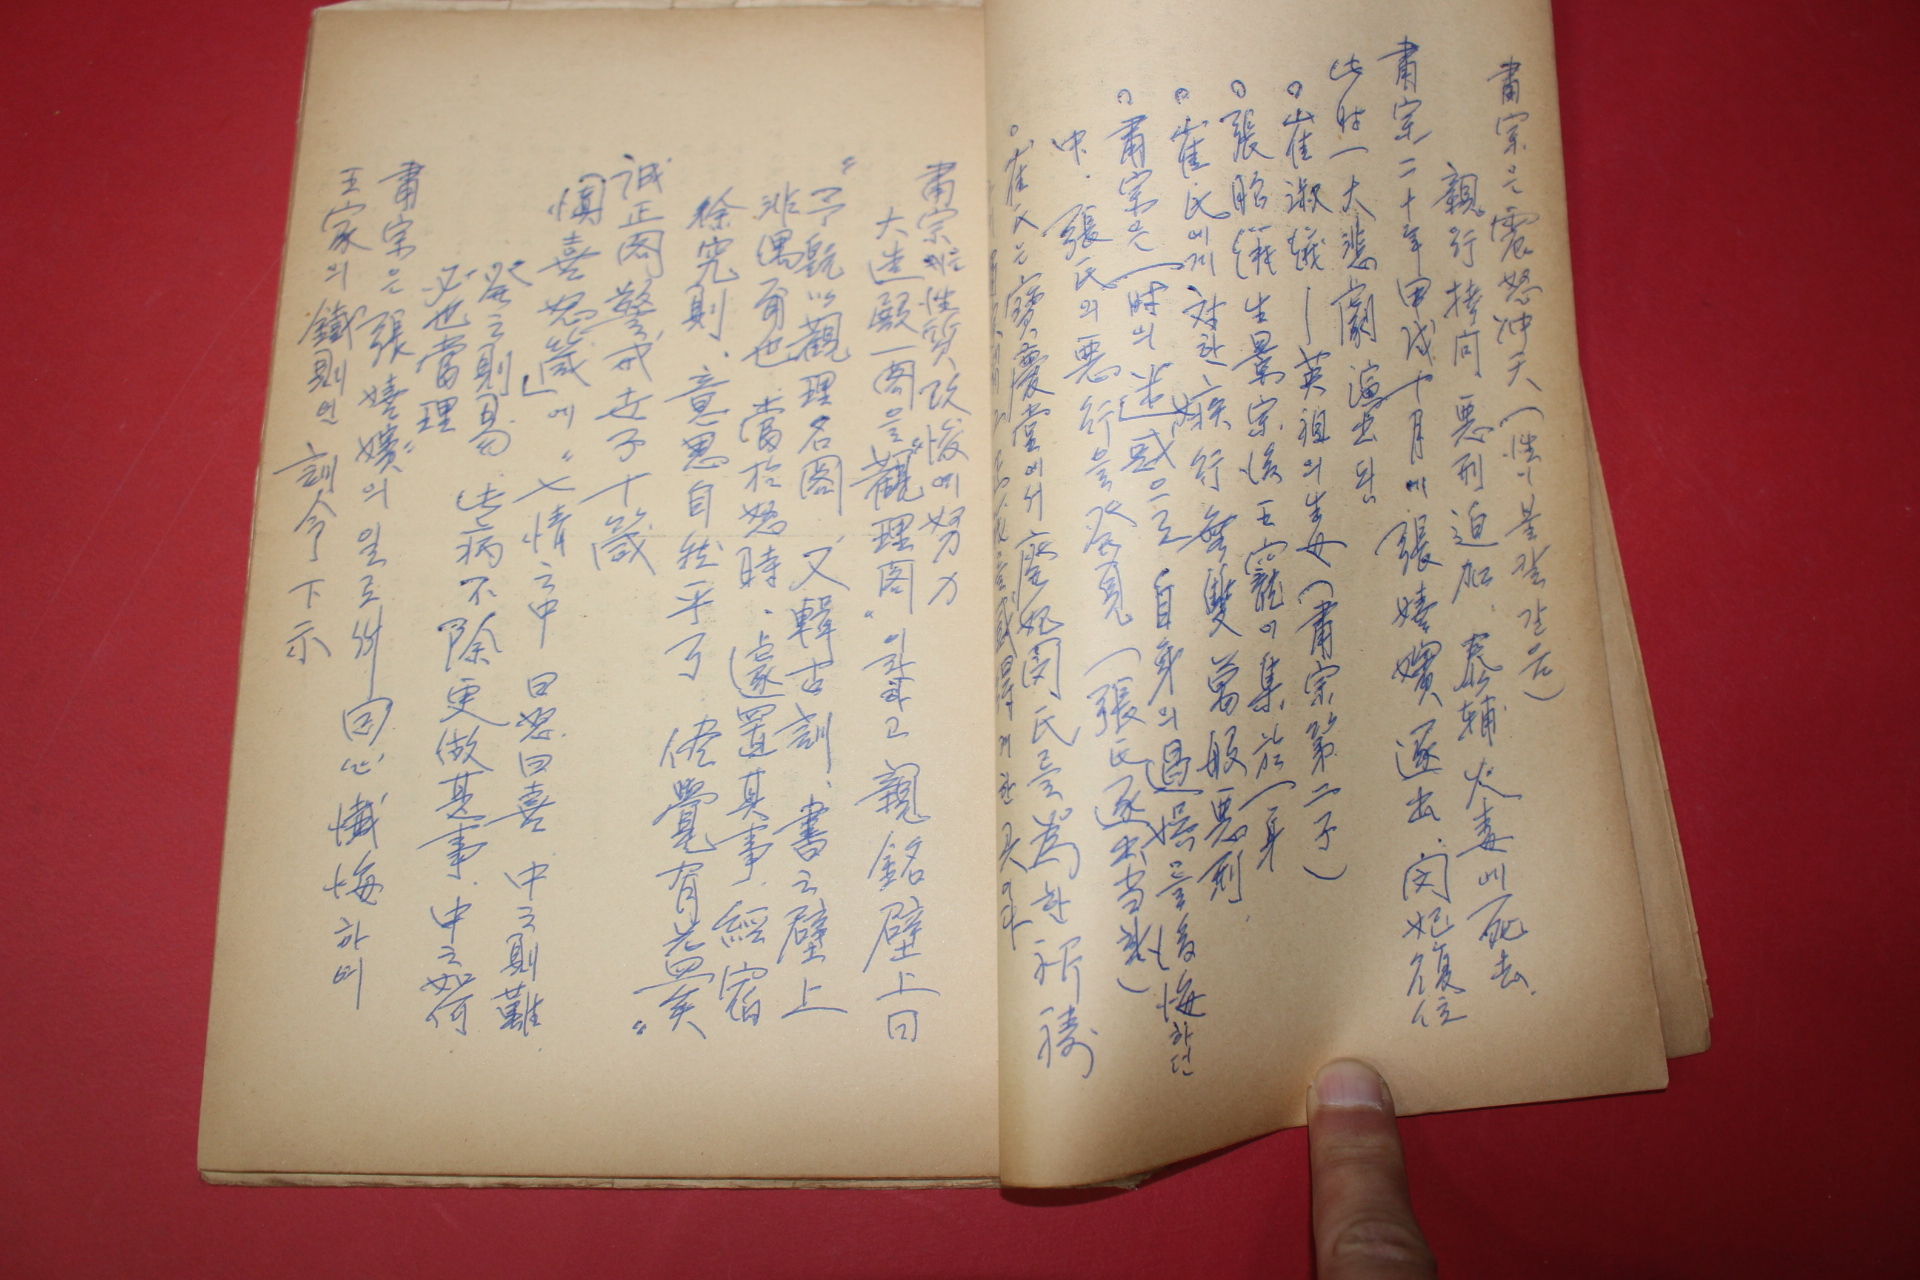 肅宗은 震怒冲天 (性이 불칼같은)
親行拷问 悪刑迫加. 泰輔 火毒에 死去.
肅宗二十年甲戌十月에 張嬉嬪 逐出. 闵妃復位
此時一大悲劇 演出되
○崔淑儀 — 英祖의生母 (肅宗第二子)
○張昭儀 生景宗後 王寵이 集於一身
○崔氏에게 対한 嫉行 無雙 萬般悪刑.
○肅宗은 一時의 迷惑으로 自身의 過誤를 後悔하던
中. 張氏의 悪行을 発覓 (張氏逐出当致)
○崔氏는 寶慶堂에서 廢妃闵氏를 爲한 祈禱
肅宗는 性質改悛에努力
大造殿一阁을 "觀理阁" 이라하고 親銘壁上曰
"予旣以觀理名阁 又輯古訓. 書之壁上
非偶爾也. 當於怒時. 遽置其事. 經宿
徐究則. 意思自然平了 侭覺有益矣"
誠正阁 警戒 世子 十箴
慎喜怒箴」에 "七情之中 曰怒曰喜. 中之則難
発之則易. 此病不除 更做其事. 中之如何
必也當理"
肅宗은 張嬉嬪의 일로서 回心 懺悔하며
王家의 鐵則인 訓令下示